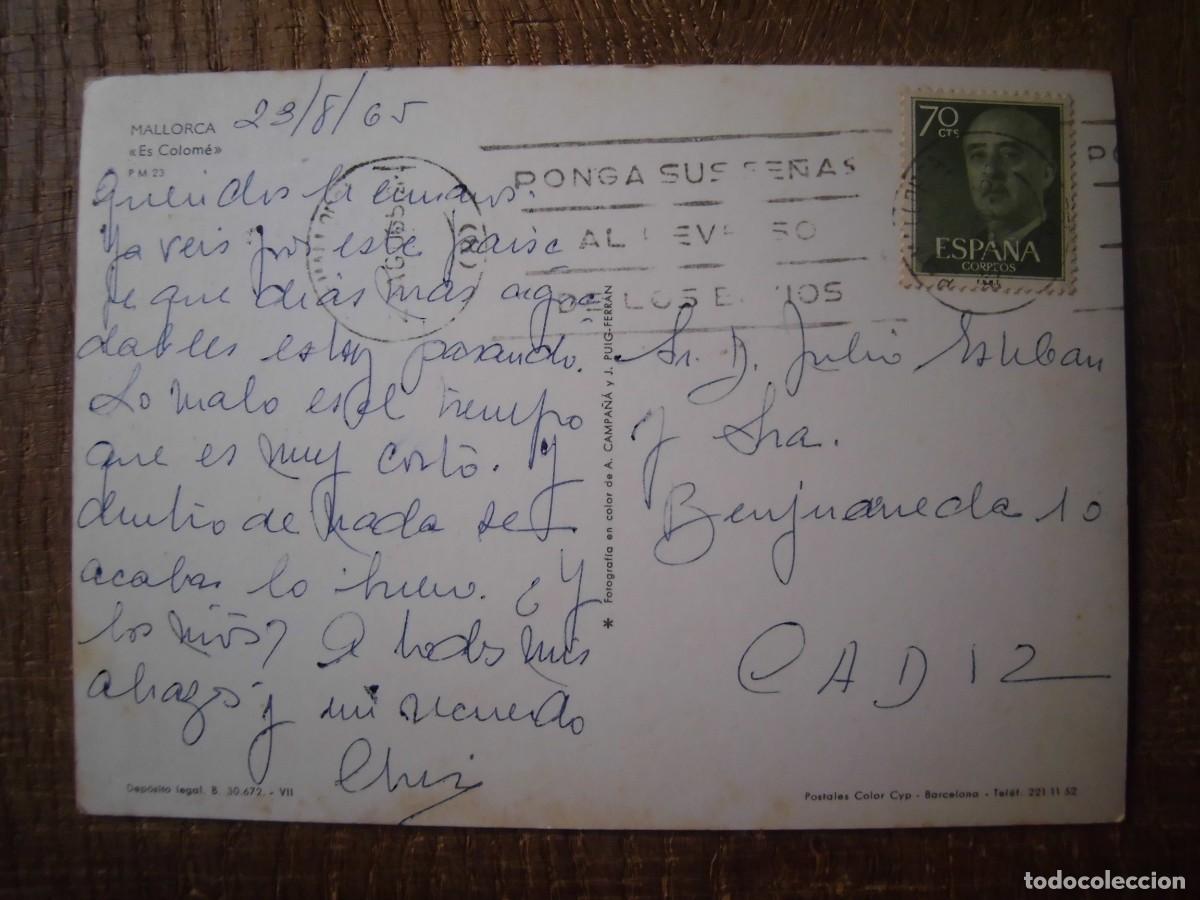 MALLORCA 23/8/65
«Es Colomé»
P M 23
Queridos
Ya veis por este paisa
je que días más agra
dables estoy pasando.
Lo malo es el tiempo
que es muy corto. Y
dentro de nada se
acabas lo bueno. ¿Y
los niños? A todos mis
abrazos y mi recuerdo
Depósito legal. B. 30.672. - VII
PONGA SUS SEÑAS
AL
DE LOS
70 CTS
ESPAÑA
CORREOS
* Fotografía en color de A. CAMPAÑÁ y J. PUIG-FERRÁN
Sr. D. Julio Esteban
y Sra.
Benjumeda 10
CADIZ
Postales Color Cyp - Barcelona - Teléf. 221 11 52
todocoleccion